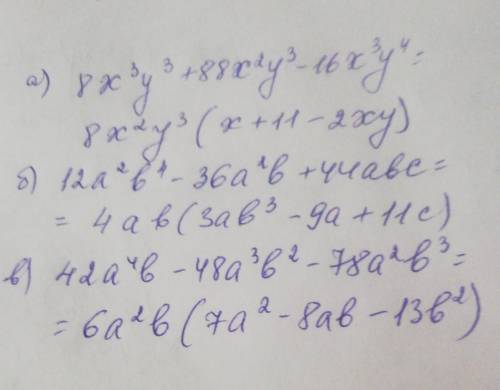 а) 8x³y³+88x²y³-16x³y⁴=
8x²y³(x+11-2xy)
б) 12a²b⁴-36a²b+44abc=
= 4ab(3ab³-9a+11c)
в) 42a⁴b-48a³b²-78a²b³=
= 6a²b(7a²-8ab-13b²)